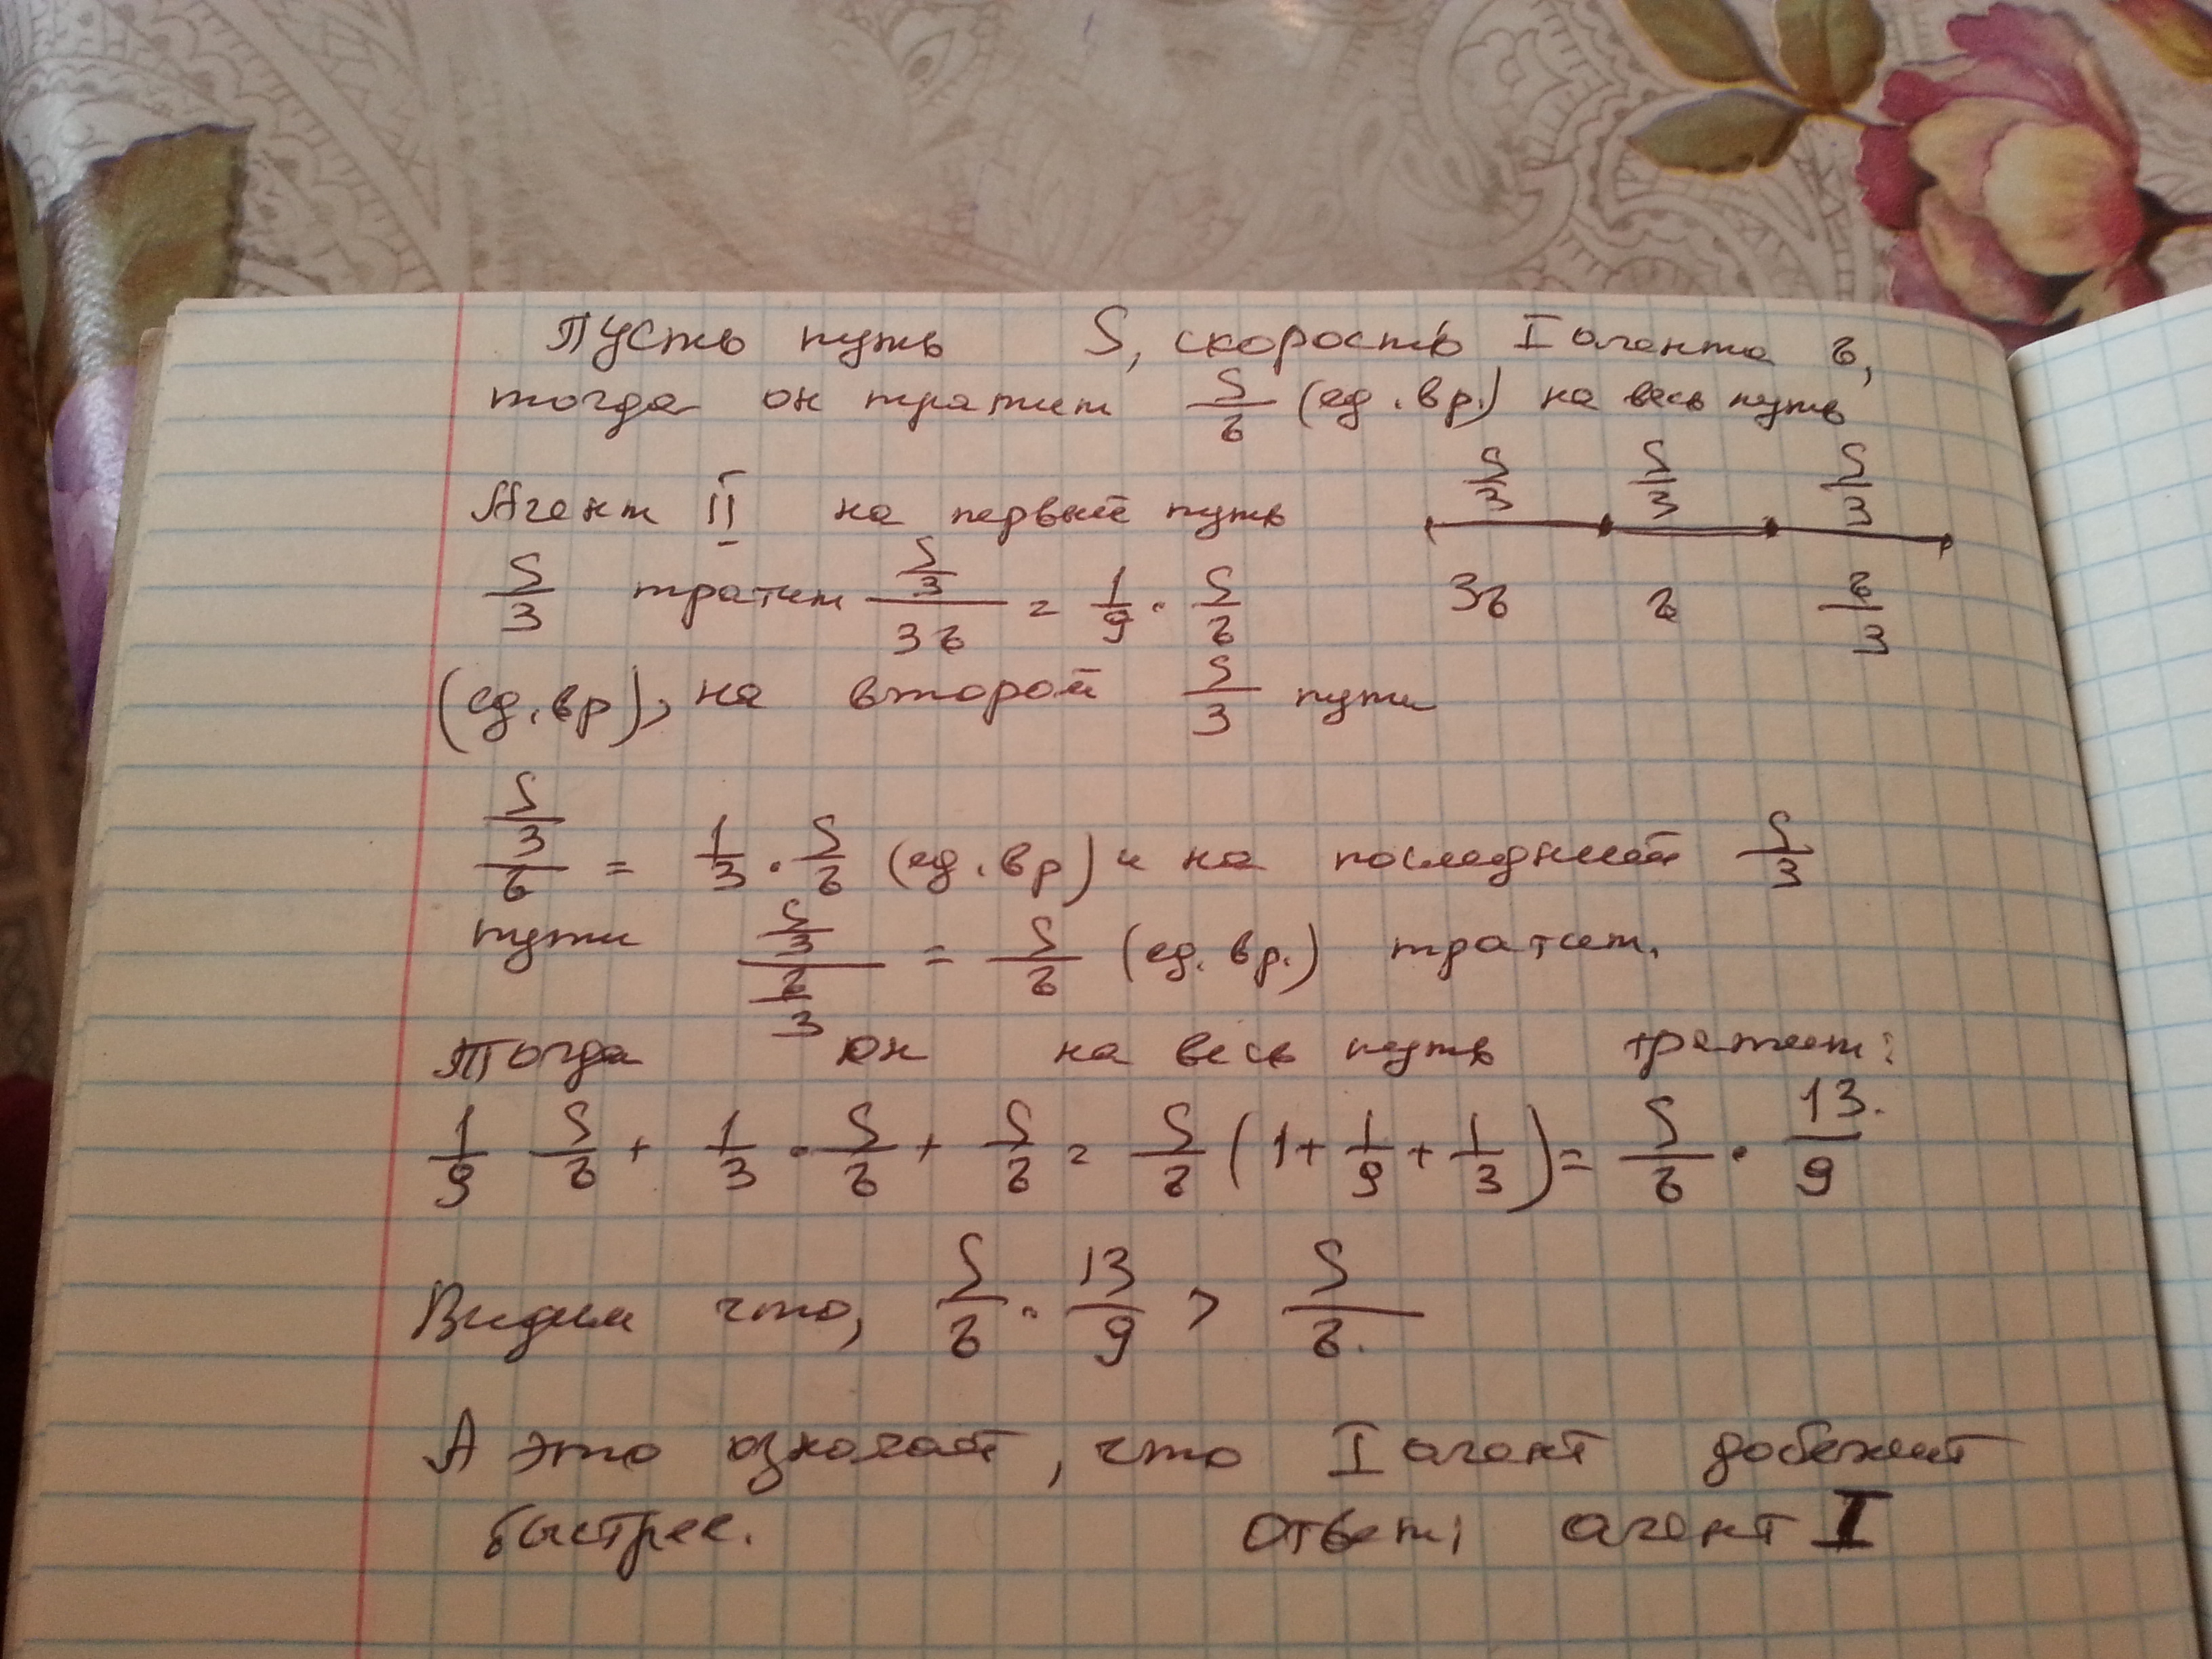 Пусть путь S, скорость I агента v,
тогда он тратит S/v (ед. вр.) на весь путь
S/3 S/3 S/3
Агент II на первый путь
S/3 тратит (S/3)/(3v) = 1/9 · S/v
3v v v/3
(ед. вр), на второй S/3 пути
(S/3)/v = 1/3 · S/v (ед. вр) и на последний S/3
пути (S/3)/(v/3) = S/v (ед. вр.) тратит.
Тогда он на весь путь тратит:
1/9 S/v + 1/3 · S/v + S/v = S/v (1 + 1/9 + 1/3) = S/v · 13/9
Видим что, S/v · 13/9 > S/v.
А это означает, что I агент добежит
быстрее. Ответ: агент I